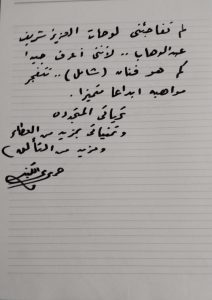 لم تفاجئني لوحات العزيز شريف
عبدالوهاب .. لأنني أعرف جيدا
كم هو فنان (شامل) .. تتفجر
مواهبه ابداعا متميزا .
تحياتي المتجدده
وتمنياتي بمزيد من العطاء
ومزيد من التألق)